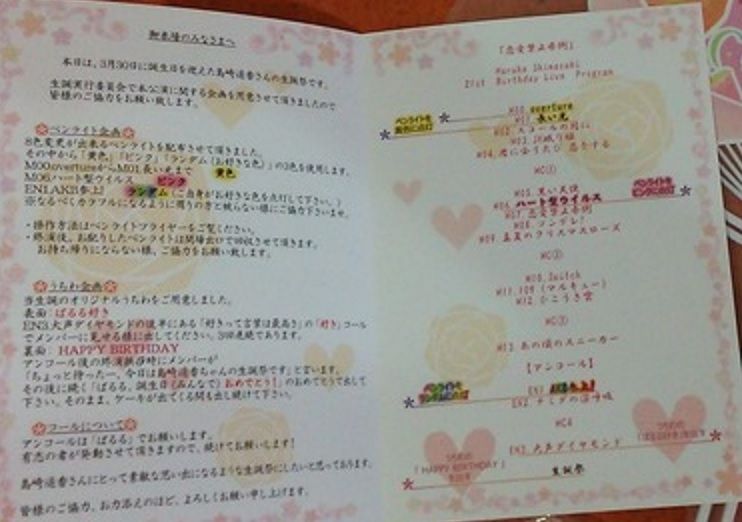 御来場のみなさまへ
本日は、3月30日に誕生日を迎えた島崎遥香さんの生誕祭です。
生誕実行委員会で本公演に関する企画を用意させて頂きましたので
皆様のご協力をお願い致します。
ペンライト企画
8色変更が出来るペンライトを配布させて頂きました。
その中から「黄色」「ピンク」「ランダム（お好きな色）」の3色を使用します。
M00.overtureからM01.長い光まで 黄色
M06.ハート型ウイルス ピンク
EN1.AKB参上! ランダム（ご自身がお好きな色を点灯して下さい。）
※なるべくカラフルになるように周りの方と被らない様にご協力下さいませ。
・操作方法はペンベンライトフライヤーをご覧ください。
・終演後、お配りしたペンライトは開場出口で回収させて頂きます。
お持ち帰りにならない様、ご協力をお願い致します。
うちわ企画
当生誕のオリジナルうちわをご用意しました。
表面：ぱるる好き
EN3.大声ダイヤモンドの後半にある「好きって言葉は最高さ」の「好き」コール
でメンバーに見せる様に出してください。3回連続であります。
裏面： HAPPY BIRTHDAY
アンコール後の終演挨拶時にメンバーが
「ちょっと待ったー、今日は島崎遥香ちゃんの生誕祭です」と言います。
その後に続く「ぱるる、誕生日（みんなで）おめでとう!」のおめでとうで出して
下さい。そのまま、ケーキが出てくる間も出し続けて下さい。
コールについて
アンコールは「ぱるる」でお願いします。
有志の者が発動させて頂きますので、続けてお願いします!
島崎遥香さんにとって素敵な思い出になるような生誕祭にしたいと思っております。
皆様のご協力、お力添えのほど、よろしくお願い申し上げます。
「恋愛禁止条例」
Haruka Shimazaki
21st Birthday Live Program
M00.overture
ペンライトを
黄色に点灯
M01.長い光
M02.スコールの間に
M03.JK眠り姫
M04.君に会うたび 恋をする
MC①
M05.黒い天使
ペンライトを
ピンクに点灯
M06.ハート型ウイルス
M07.恋愛禁止条例
M08.ツンデレ!
M09.真夏のクリスマスローズ
MC②
M10.Switch
M11.109（マルキュー）
M12.ひこうき雲
MC③
M13.あの頃のスニーカー
【アンコール】
ペンライトを
EN1.AKB参上!
EN2.ナミダの深呼吸
MC④
EN3.大声ダイヤモンド
うちわの
うちわの
「HAPPY BIRTHDAY」
生誕祭